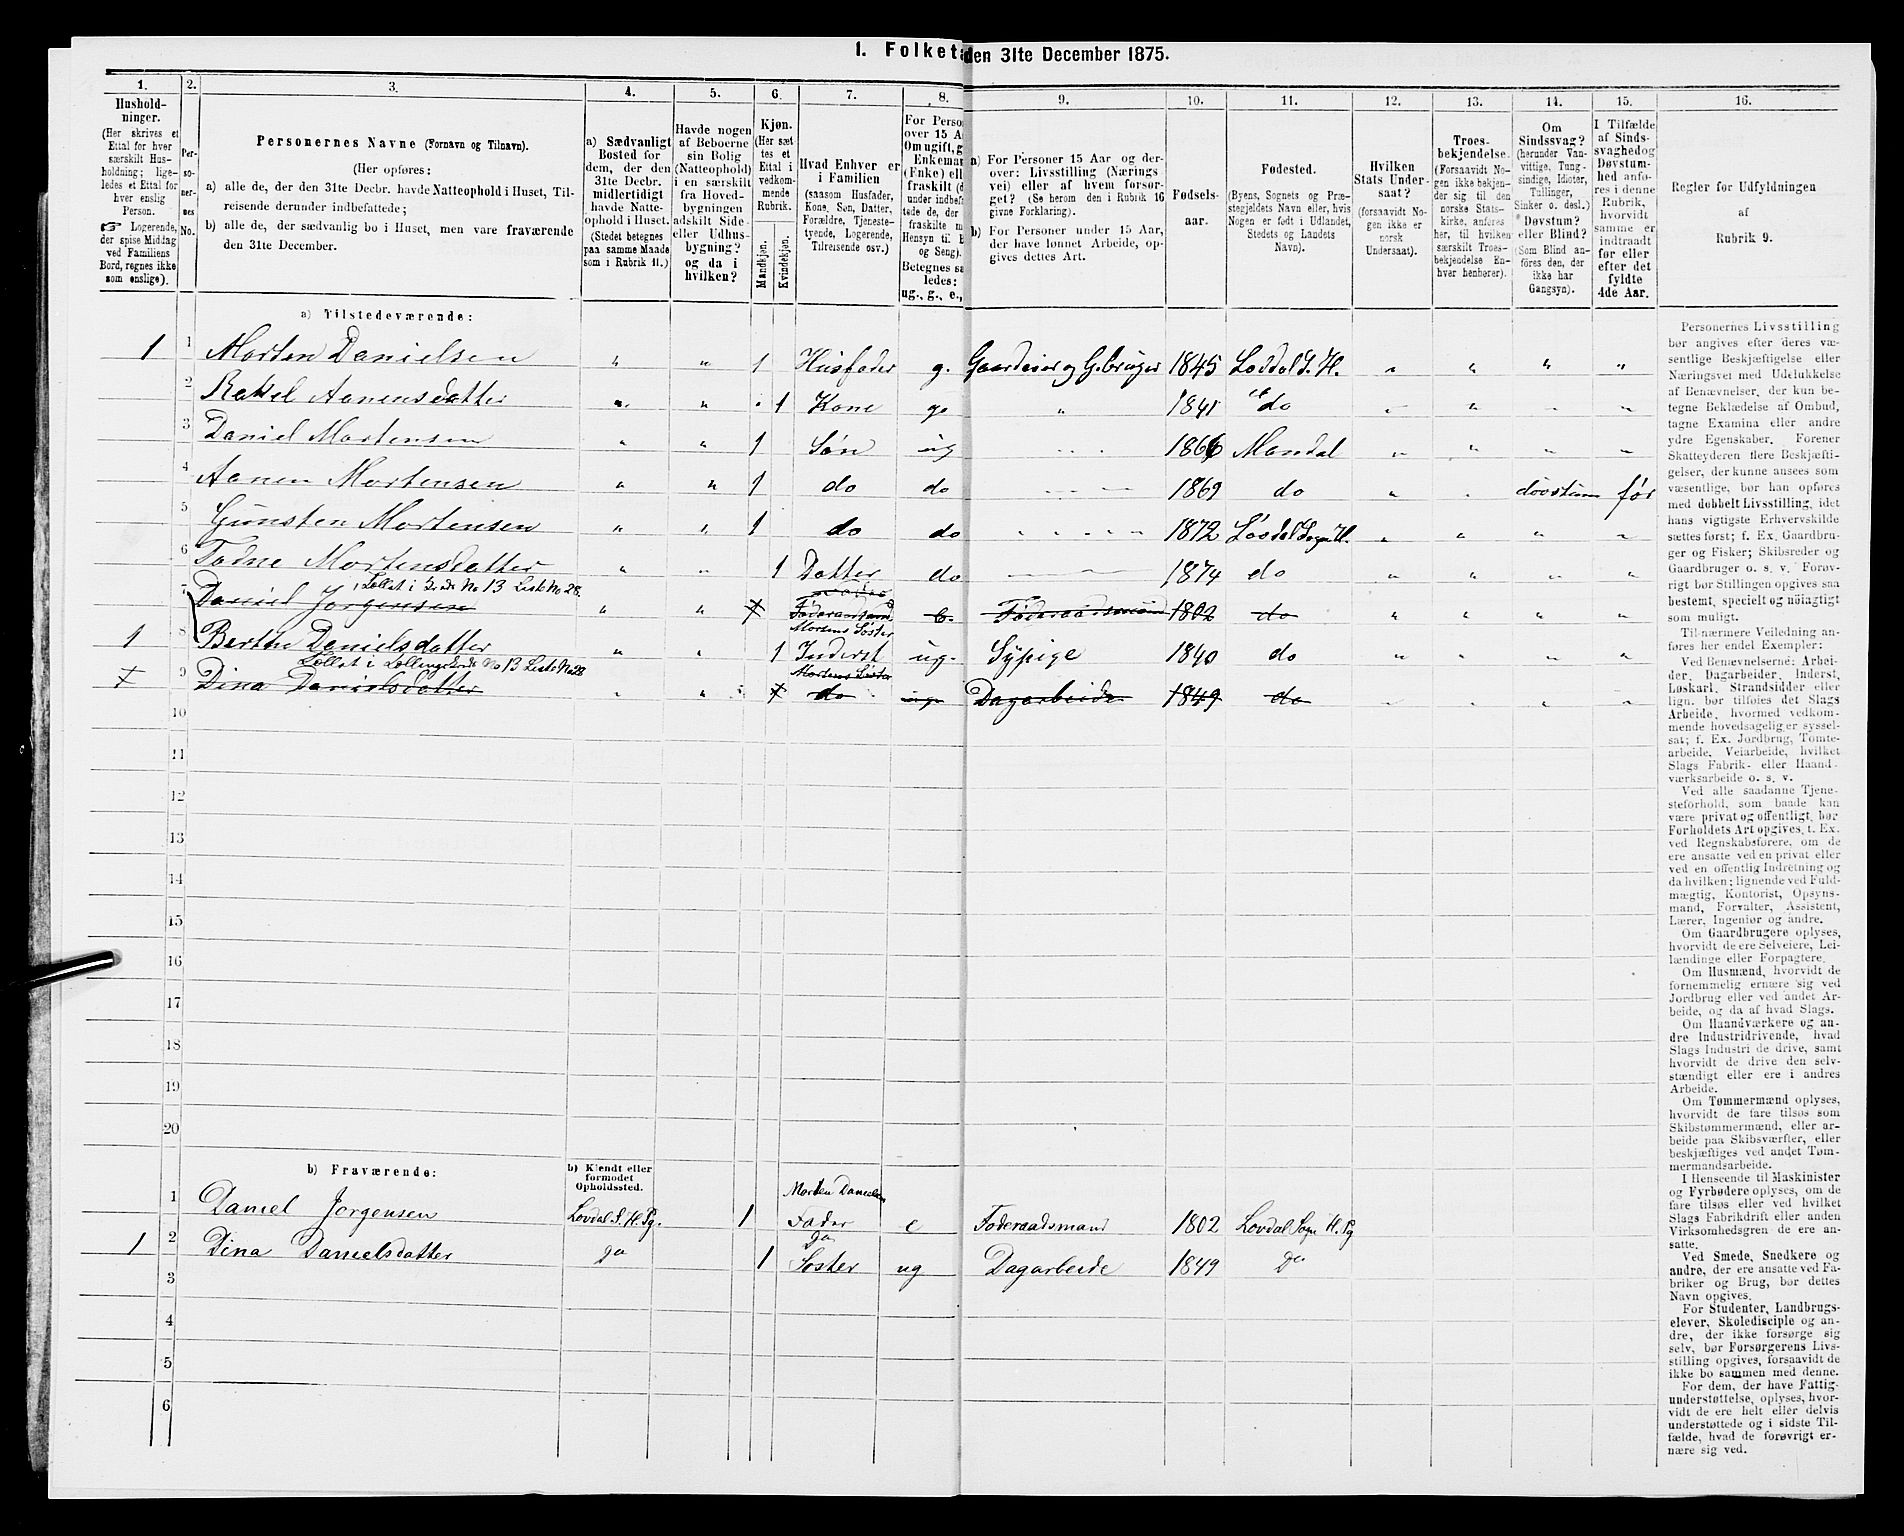 1. Folketæ den 31te December 1875.
1. 2. 3. 4. 5. 6. 7. 8. 9. 10. 11. 12. 13. 14. 15. 16.
Hushold-
ninger.
(Her skrives et
Ettal for hver
særskilt Hus-
holdning; lige-
ledes et Ettal for
hver enslig
Person.
☞ Logerende,
der spise Middag
ved Familiens
Bord, regnes ikke
som enslige).
Per-
so-
ner-
nes
No.
Personernes Navne (Fornavn og Tilnavn).
(Her opføres:
a) alle de, der den 31te Decbr. havde Natteophold i Huset, Til-
reisende derunder indbefattede;
b) alle de, der sædvanlig bo i Huset, men vare fraværende
den 31te December.
a) Sædvanligt
Bosted for
dem, der den
31te Decbr.
midlertidigt
havde Natte-
ophold i Huset.
(Stedet betegnes
paa samme Maade
som i Rubrik 11.)
Havde nogen
af Beboerne
sin Bolig
(Natteophold)
i en særskilt
fra Hoved-
bygningen
adskilt Side-
eller Udhus-
bygning?
og da i
hvilken?
Kjøn.
(Her sæt
tes et
Ettal i
vedkom-
mende
Rubrik.
Mandkjøn.
Kvindekjøn.
Hvad Enhver er
i Familien
(saasom Husfader,
Kone, Søn, Datter,
Forældre, Tjeneste-
tyende, Logerende,
Tilreisende osv.)
For Perso
over 15 A
Om ugift, g
Enkemar
(Enke) ell
fraskilt (d
under indbef
tede de, der
fraskilte m
Hensyn til B
og Seng).
Betegnes sa
ledes:
ug., g., e.,
a) For Personer 15 Aar og der-
over: Livsstilling (Nærings
vei) eller af hvem forsør-
get? (Se herom den i Rubrik 16
givne Forklaring).
b) For Personer under 15 Aar,
der have lønnet Arbeide, op-
gives dettes Art.
Fødsels-
aar.
Fødested.
(Byens, Sognets og Præ-
stegjeldets Navn eller, hvis
Nogen er født i Udlandet,
Stedets og Landets
Navn).
Hvilken
Stats Under-
saat?
(forsaavidt No-
gen ikke er
norsk
Undersaat).
Troes-
bekjendelse.
(Forsaavidt No-
gen ikke bekjen-
der sig til den
norske Stats-
kirke, anføres
her, til hvilken
særskilt Troes-
bekjendelse En-
hver henhører).
Om
Sindssvag?
(herunder Van-
vittige, Tung-
sindige, Idioter,
Tullinger,
Sinker o. desl.)
Døvstum?
eller Blind?
(Som Blind an-
føres den, der
ikke har
Gangsyn).
I Tilfælde
af Sinds-
svaghed og
Døvstum-
hed anfø-
res i denne
Rubrik,
hvorvidt
samme er
indtraadt
før eller
efter det
fyldte
4de Aar.
Regler før Udfyldningen
af
Rubrik 9.
a) Tilstedeværende:
1 1 Morten Danielsen " " 1 Husfader g. Gaardeier og G.bruger 1845 Lovdal S. H. " " " "
2 Rakel Aanensdatter " " 1 Kone g. " 1841 do " " " "
3 Daniel Mortensen " " 1 Søn ug 1866 Mandal " " " "
4 Aanen Mortensen " " 1 do do 1869 do " " døvstum før
5 Gunsten Mortensen " " 1 do do 1872 Løvdal Sogn H. " " " "
6 Todne Mortensdatter " " 1 Datter do 1874 do " " " "
Tællat i No 13 Liste No 28.
7 Daniel Jørgensen " " Føderaadsmand e. Føderaadsmand 1802 do " " " "
Mortens Søster
1 8 Berthe Danielsdatter " " 1 Inderst ug. Sypige 1840 do " " " "
Tællat i Tællingskreds No 13 Liste No 28
Mortens Søster
9 Dina Danielsdatter " " do ug Dagarbeide 1849 do " " " "
10
11
12
13
14
15
16
17
18
19
20
b) Fraværende:
b) Kjendt eller
formodet
Opholdssted.
Morten Danielsen
1 Daniel Jørgensen Lovdal S. H. Pg. 1 Fader e Føderaadsmand 1802 Lovdal Sogn H. Pg
1 2 Dina Danielsdatter Do 1 Do Søster ug Dagarbeide 1849 Do
3
4
5
6
Personernes Livsstilling
bør angives efter deres væ-
sentlige Beskjæftigelse eller
Næringsvei med Udelukkelse
af Benævnelser, der kun be-
tegne Beklædelse af Ombud,
tagne Examina eller andre
ydre Egenskaber. Forener
Skatteyderen flere Beskjæfti-
gelser, der kunne ansees som
væsentlige, bør han opføres
med dobbelt Livsstilling, idet
hans vigtigste Erhvervskilde
sættes først; f. Ex. Gaardbru-
ger og Fisker; Skibsreder og
Gaardbruger o. s. v. Forøv-
rigt bør Stillingen opgives saa
bestemt, specielt og nøiagtigt
som muligt.
Til nærmere Veiledning an-
føres her endel Exempler:
Ved Benævnelserne: Arbei-
der, Dagarbeider, Inderst,
Løskarl, Strandsidder eller
lign. bør tilføies det Slags
Arbeide, hvormed vedkom-
mende hovedsagelig er syssel-
sat; f. Ex. Jordbrug, Tomte-
arbeide, Veiarbeide, hvilket
Slags Fabrik- eller Haand-
værksarbeide o. s. v.
Ved alle saadanne Tjene-
steforhold, som baade kan
være privat og offentligt, bør
Forholdets Art opgives, t. Ex.
ved Regnskabsførere, om de
ere ansatte ved en privat eller
ved en offentlig Indretning og
da hvilken; lignende ved Fuld-
mægtig, Kontorist, Opsyns-
mand, Forvalter, Assistent,
Lærer, Ingeniør og andre.
Om Gaardbrugere oplyses,
hvorvidt de ere Selveiere, Lei-
lændinge eller Forpagtere.
Om Husmænd, hvorvidt de
fornemmelig ernære sig ved
Jordbrug eller ved andet Ar-
beide, og da af hvad Slags.
Om Haandværkere og an-
dre Industridrivende, hvad
Slags Industri de drive, samt
hvorvidt de drive den selv-
stændigt eller ere i andres
Arbeide.
Om Tømmermænd oplyses,
hvorvidt de fare tilsøs som
Skibstømmermænd, eller ar-
beide paa Skibsværfter, eller
beskjæftiges ved andet Tøm-
mermandsarbeide.
I Henseende til Maskinister
og Fyrbødere oplyses, om de
fare tilsøs eller ved hvilket
Slags Fabrikdrift eller anden
Virksomhedsgren de ere an-
satte.
Ved Smede, Snedkere og
andre, der ere ansatte ved Fa-
briker og Brug, bør dettes
Navn opgives.
For Studenter, Landbrugs-
elever, Skoledisciple og an-
dre, der ikke forsørge sig
selv, bør Forsørgerens Livs-
stilling opgives, forsaavidt de
ikke bo sammen med denne.
For dem, der have Fattig-
understøttelse, oplyses, hvor-
vidt de ere helt eller delvis
understøttede og i sidste Til-
fælde, hvad de forøvrigt er-
nære sig ved.